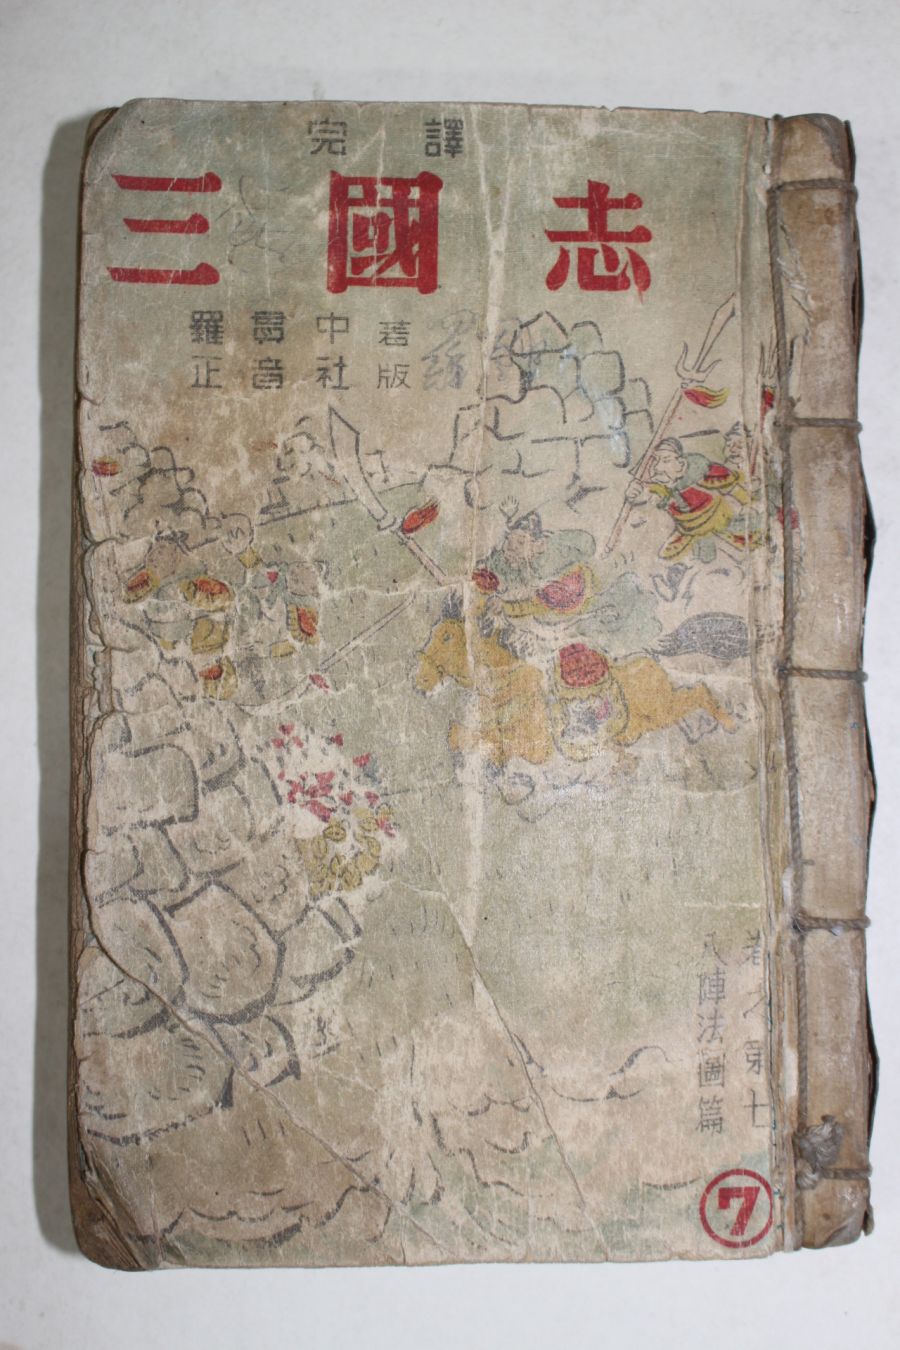 完譯
三國志
羅貫中著
正音社版
卷之第七
八陣法圖篇
7